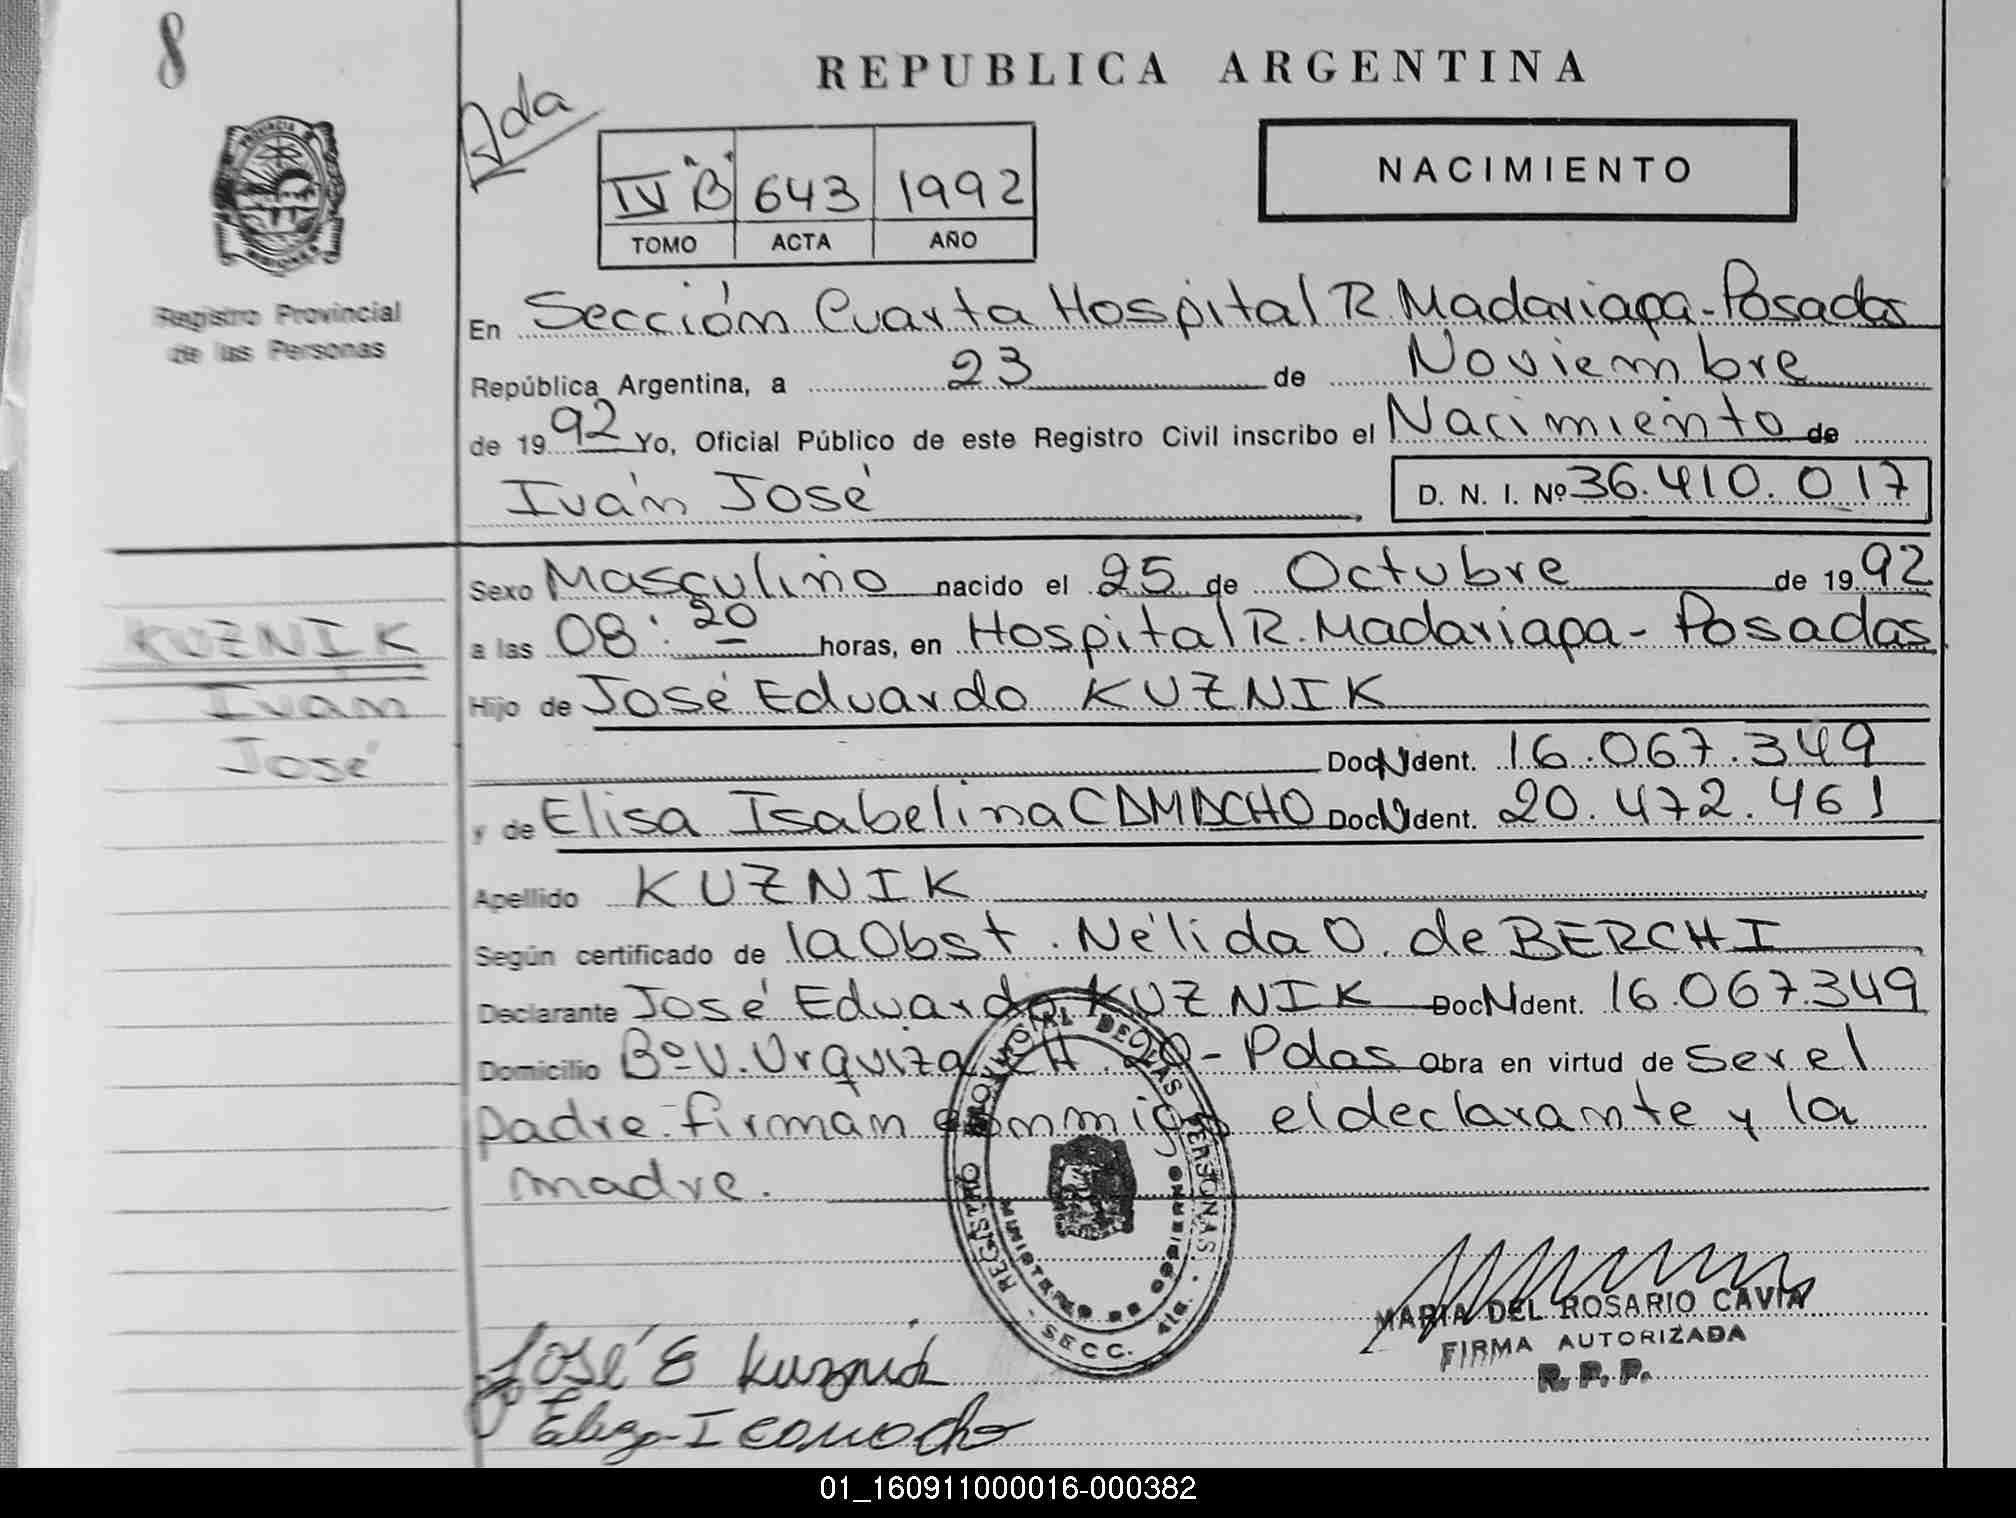 8
REPUBLICA ARGENTINA
Ada
IV "B" 643 1992
TOMO ACTA AÑO
NACIMIENTO
PROVINCIA DE
MISIONES
Registro Provincial
de las Personas
En Sección Cuarta Hospital R. Madariaga - Posadas
República Argentina, a 23 de Noviembre
de 1992 Yo, Oficial Público de este Registro Civil inscribo el Nacimiento de
Iván José
D. N. I. Nº 36.410.017
Sexo Masculino nacido el 25 de Octubre de 1992
a las 08:20 horas, en Hospital R. Madariaga - Posadas
Hijo de José Eduardo KUZNIK
Doc N Ident. 16.067.349
y de Elisa Isabelina CAMACHO Doc N Ident. 20.472.461
Apellido KUZNIK
Según certificado de la Obst. Nélida O. de BERCHI
Declarante José Eduardo KUZNIK Doc N Ident. 16.067.349
Domicilio Bº U. Urquiza CH. 20 - Pdas Obra en virtud de ser el
padre. firman conmigo el declarante y la
madre.
KUZNIK
Iván
José
REGISTRO PROVINCIAL DE LAS PERSONAS
MINISTERIO DE GOBIERNO
SECC. 4ta.
MARIA DEL ROSARIO CAVIA
FIRMA AUTORIZADA
R. P. P.
José E Kuznik
Elisa I Camacho
01_160911000016-000382